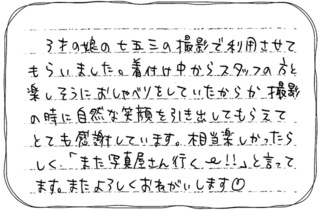 3才の娘の七五三の撮影で利用させて
もらいました。着付け中からスタッフの方と
楽しそうにおしゃべりをしていたからか、撮影
の時に自然な笑顔を引き出してもらえて
とても感謝しています。相当楽しかったら
しく、「また写真屋さん行く〜!!」と言って
ます。またよろしくおねがいします♡